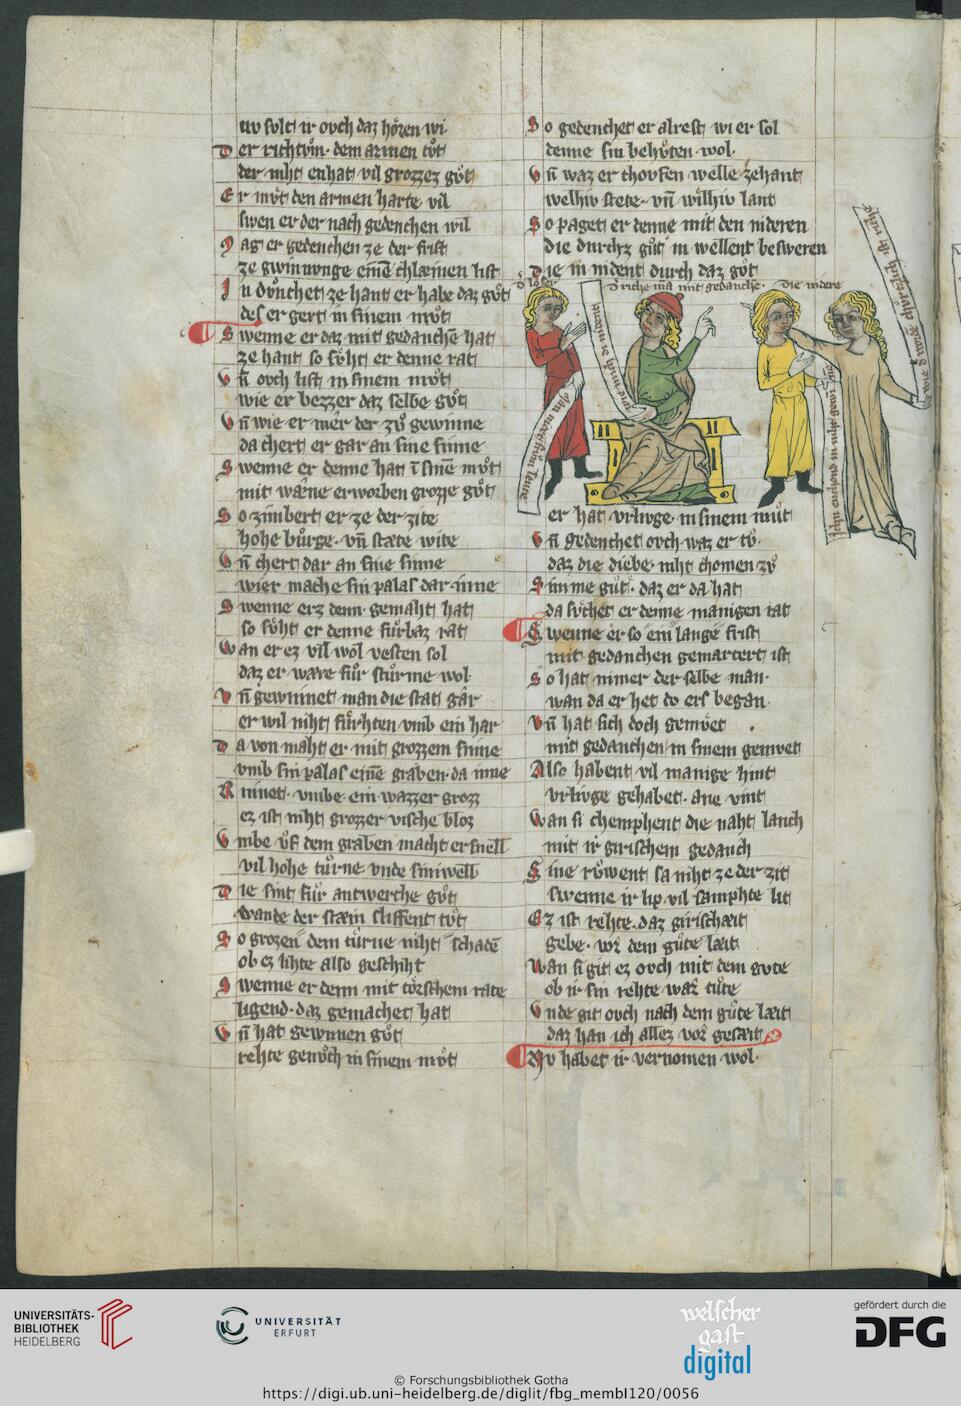 nv svlt ir ovch daz hôzen wi·
Der richtvͦm· dem armen tvͦt
der niht enhat vil grozzez gvͦt
Er mvͦt den armen harte vil
swen er der nach gedenchen wil
Mag er gedenchen ze der frist
ze gwinnvnge einē chlæinen list
In dvͦnchet ze hant er habe daz gvͦt
des er gert in sinem mvͦt
Swenne er daz mit gedanchē hat
ze hant so sv̂ht er denne rat
Vn̄ ovch list in sinem mvͦt
wie er bezzer daz selbe gvͦt
Vn̄ wie er mêr der zvͦ gewinne
da chert er gar an sine sinne
Swenne er denne hat ī sinē mvͦt
mit wârne erworben grozze gvͦt
So zimbert er ze der zite
hohe bûrge· vn̄ stæte wite
Vn̄ chert dar an sine sinne
wier mache sin palas dar inne
Swenne erz denn· gemaht hat
so sv̂ht er denne fûrbaz rat
Wan er ez vil wol vesten sol
daz er wære fûr stûrme wol·
Vn̄ gewinnet man die stat gâr
er wil niht fûrhten vmb ein har
Da von maht er mit grozzem sinne
vmb sin palas einē graben· da inne
Rinnet· vmbe· ein wazzer grozz
ez ist niht grozzer vische bloz
Vmbe vͦf dem graben macht er snell
vil hohe tûrne· vnde sinwell
Die sint fûr antwerche gvͦt
wande der stæin sliffent tvͦt
So grozen dem tûrne niht schadē
ob ez lihte also geschiht
Swenne er denn mit tôrschem rate
ligend· daz gemachet hat
Vn̄ hat gewnnen gvͦt
rehte genvͦch in sinem mvͦt
So gedenchet er alrest wi er sol
denne sin behvͦten· wol·
Vn̄ waz er chovfen welle zehant
welhiv stete· vn̄ wilhiv lant
So paget er denne mit den nideren
die durch gût in wellent besweren
Die in nident durch daz gvͦt
d· riche mā mit gedanche· die nidere
er hat vrlivge· in sinem mût
Vn̄ gedenchet ovch waz er tv̂·
daz die diebe· niht chomen zvͦ
Sinme gût· daz er da hat
da sv̂chet er denne manigen rat
Swenne er so ein lange frist
mit gedanchen gemartert ist
So hat nimer der selbe man·
wan da er het do ers began·
Vn̄ hat sich doch gemvet
mit gedanchen in sinem gemvet
Also habent vil manige hint
vrlivge gehabet· ane vint
Wan si chemphent die naht lanch
mit ir girischem gedanch
Sine rvͦwent sa niht ze der zit
swenne ir lip vil samphte lit
Ez ist rehte· daz girischæit
gebe· vor dem gûte læit
Wan si git ez ovch mit dem gvte
ob ir sin rehte war tûte
Vnde git ovch nach dem gûte læit
daz han ich allez vor gesæit
Nv habet ir vernomen wol·
UNIVERSITÄTS-
BIBLIOTHEK
HEIDELBERG
UNIVERSITÄT
ERFURT
welscher
gast
digital
gefördert durch die
DFG
© Forschungsbibliothek Gotha
https://digi.ub.uni-heidelberg.de/diglit/fbg_membI120/0056